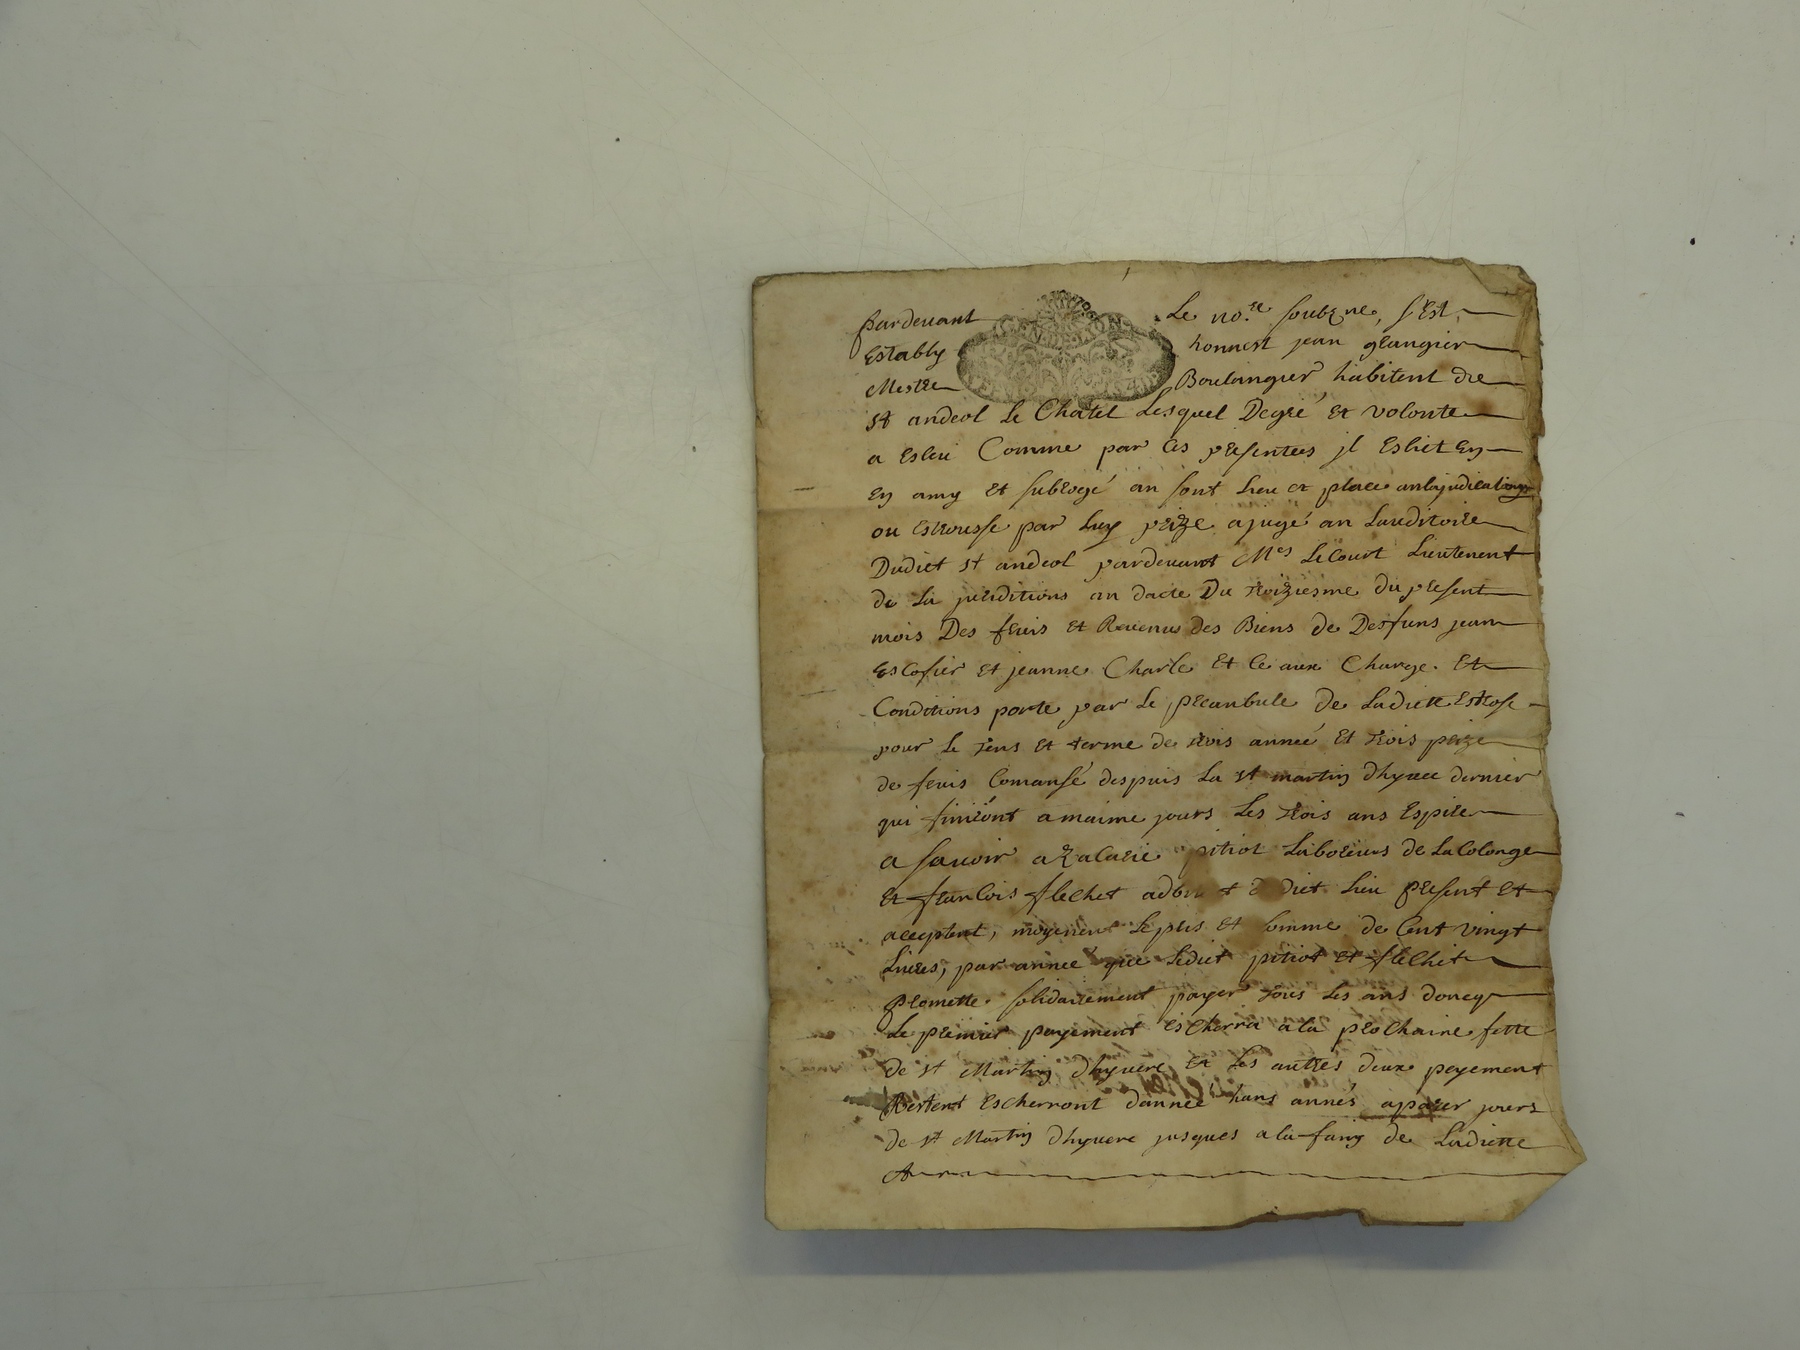 pardevant Le no.re soubzne, s'Est
Estably honnest jean grangier
Mestre Boulangier habitent de
st andeol Le Chatel Lesquel Degré et volonte
a Esleu Comme par Ces presentees jl Eslict En
En amy et subrogé an sont Lieu et place anlajudications
ou Estrousse par Luy prize ajugé an Lauditoire
Dudict st andeol pardevant Mes LeCourt Lieutenent
de La jurditions an dacte Du troiziesme du present
mois Des fruis et Revenus des Biens de Desfuns jean
Escofier et jeanne Charle et Ce aux Charge. Et
Conditions porte par Le preanbule de Ladictte Estrose
pour Le tens et terme de trois anneé et trois prize
de fruis Comansé despuis La st martin dhyvere dernier
qui finiront amaime jours Les trois ans Espire
a savoir a Zacarie pitiot Laboreurs de LaColonge
Et franCois fleChet dudict Lieu present et
acceptent, moyenent Le pris et somme de Cent vingt
Livres, par anneé que Ledict pitiot et fleChet
promette solidairement payer tous Les ans doncq
Le premier payement EsCherra a La proChaine fette
de st Martin dhyvere, et Les autres deux payement
Restent Escherront dannee hans annés apareer jours
de st Martin dhyvere jusques ala faing de Ladictte
A